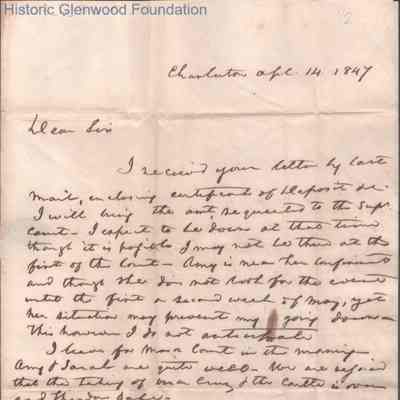 Historic Glenwood Foundation
Charleston Apl. 14. 1847
Dear Sir
I received your letter by last
mail, enclosing certificate of Deposit &c.
I will bring the amt, requested to the Sup.
Court - I expect to be down at that time
though it is possible I may not be there at the
first of the Court - Amy is near her confinement
and though she does not look for the event
until the first or second week of May, yet
her situation may prevent my going down -
This however I do not anticipate
I leave for Court in the morning -
Amy & Sarah are quite well - We are rejoiced
that the taking of Vera Cruz & the Castle is over
and Theodore safe -